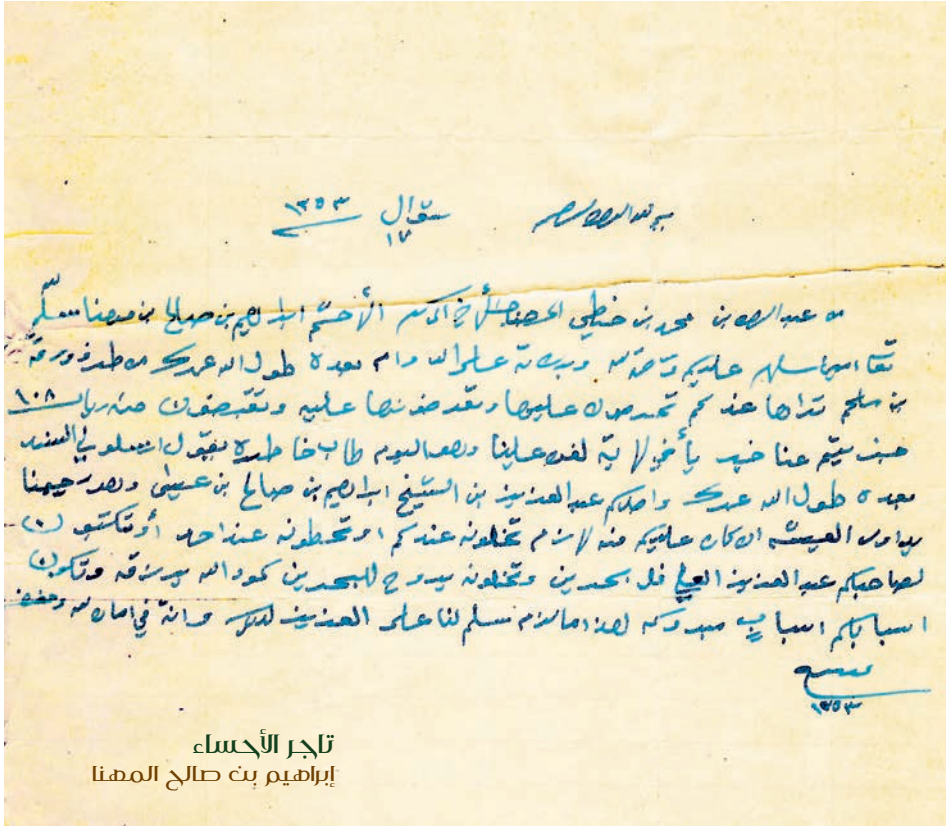 بسم الله الرحمن الرحيم شوال ١٣٥٣
١٧
من عبد الرحمن بن محمد بن خنطي إلى جناب الأخ المكرم الأحشم ابراهيم بن صالح بن مهنا سلمه
تعالى سلام عليكم ورحمة الله وبركاته على الدوام بعده طول الله عمرك من طرف ورقة
بن ملحم تراها عندكم تحرصون عليها وتقدمونها عليه وتقبضون منه ريال ١٠٨
عنا خير يا اليوم طاب خاطره يقول ارسلو لي السند
بعده طول الله عمرك واصلكم عبد العزيز بن الشيخ ابراهيم بن صالح بن عيسى وهو رحيمنا
يداور العيشه ان كان عليكم منه لازم تخلونه عندكم او تحطونه عند احد أو تكتبون
لصاحبكم عبد العزيز العلي في البحرين وتخلونه يروح للبحرين كود الله يرزقه وتكون
اسبابكم اسباب مبروكه هذا ما لزم سلم لنا على العزيز لديك وانت في امان الله وحفظه
١٣٥٣
تاجر الأحساء
إبراهيم بن صالح المهنا